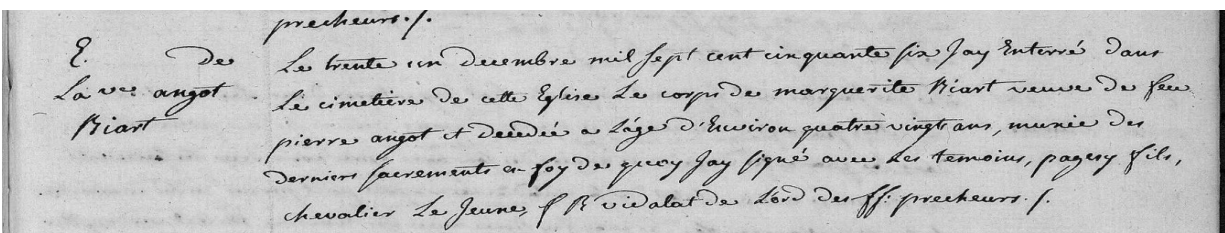 precheurs ./.
E. de
La vve angot
Riart
Le trente un decembre mil sept cent cinquante six Jay Enterré dans
Le cimetière de cette Eglise Le corps de marguerite Riart veuve de feu
pierre angot et decedée a Lâge d'Environ quatre vingt ans, munie des
derniers sacrements en foy de quoy Jay signé avec Les temoins, pagesy fils,
chevalier Le Jeune, f R vidalat de L'ord des ff. precheurs ./.